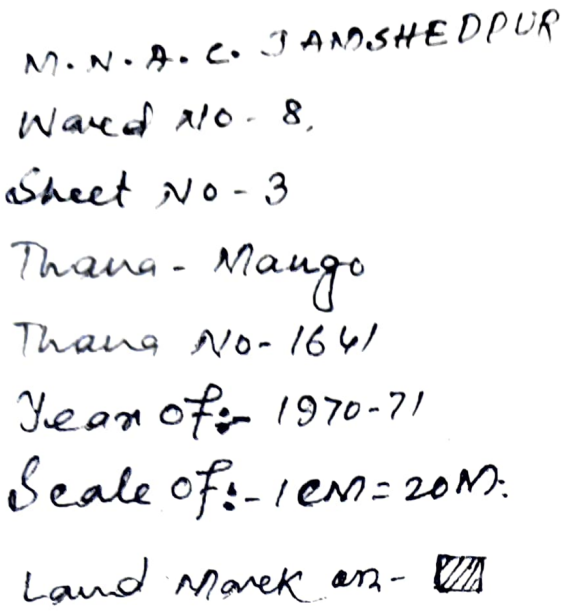 M.N.A.C. JAMSHEDPUR
Ward No - 8.
Sheet No - 3
Thana - Mango
Thana No - 1641
Year of:- 1970-71
Scale of:- 1 CM = 20 M.
Land Mark on -